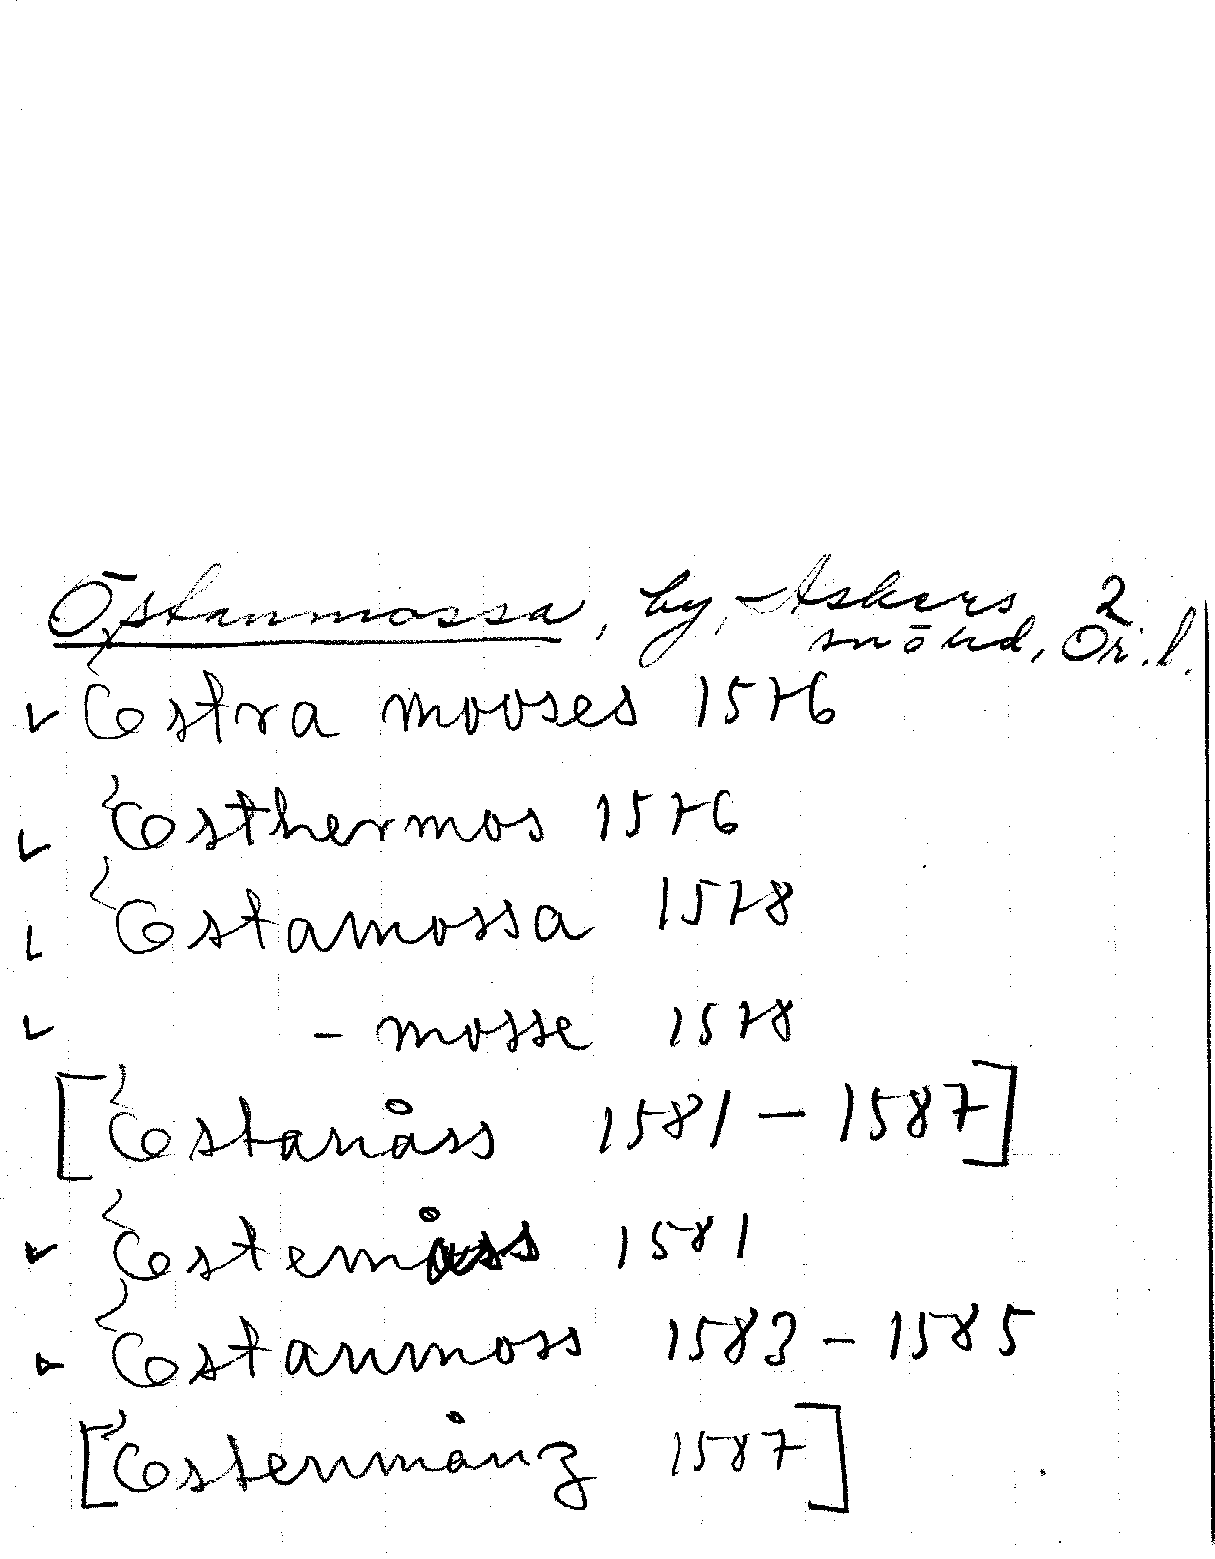 Östanmossa, by, Askers 2
snöhd, Ör. l.
Östra mooses 1576
Östhermos 1576
Östamossa 1578
- mosse 1578
[Östanåss 1581 – 1587]
Östemåss 1581
Östanmoss 1583 – 1585
[Östenmånz 1587]